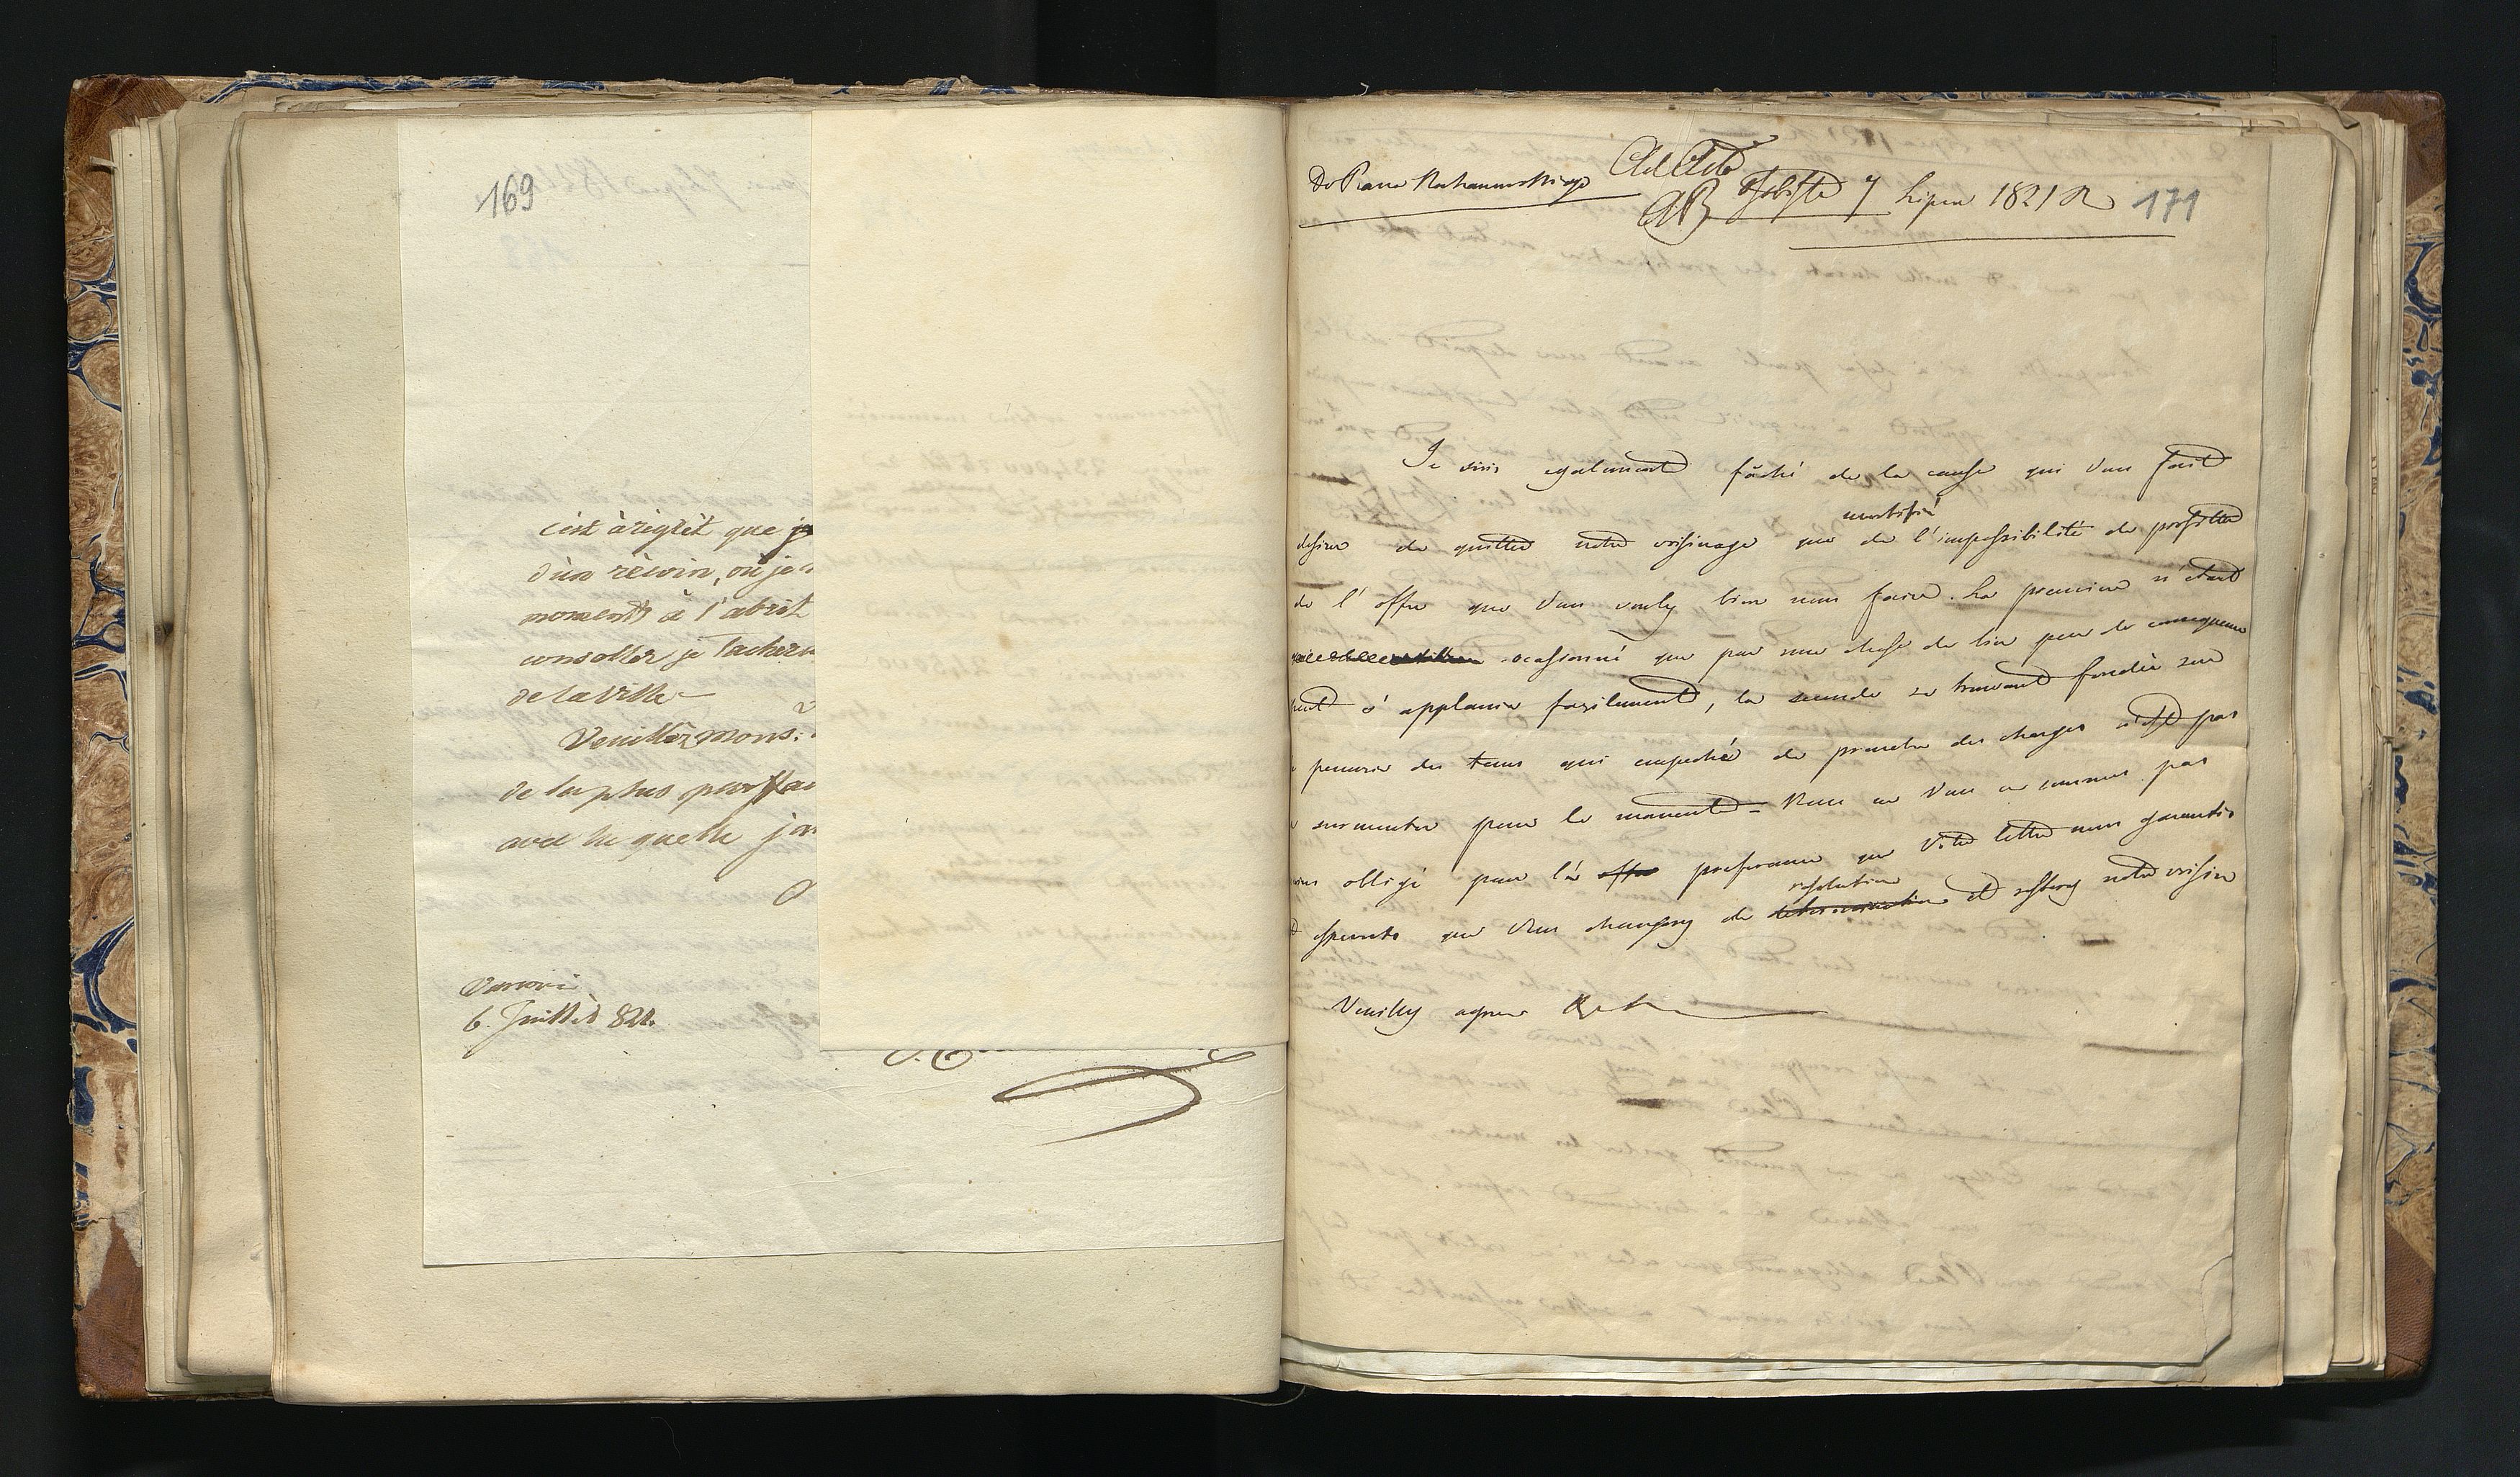 169
c'est à régrèt que je
d'un réwin, où je
moments à l'abrit
consoller je tacherai
de la ville —
Veuillèz mons:
de la plus parffai
avec la quelle j'ai
Varsovie
6. Juillèt 821.
Ad Acta
Do Pana Kochanowskiego
7 Lipca 1821 R
171
Je suis egalement fâché de la cause qui Vous fait
desirer de quitter notre voisinage que mortifié de l'impossibilité de profiter
de l'offre que Vous voulez bien nous faire. La premiere n'etant
ocassionné que par une chose de bien peu de consequence
peut s'applanir facilement, la seconde se trouvant fondée sur
penurie des tems qui empeche de prendre des charges n'est pas
surmonter pour le moment - Nous ne Vous en sommes pas
obligé pour la offre preferance que Votre lettre nous garantis
esperants que Vous changerez de determination resolution et resterez notre voisin
Veuillez agreer